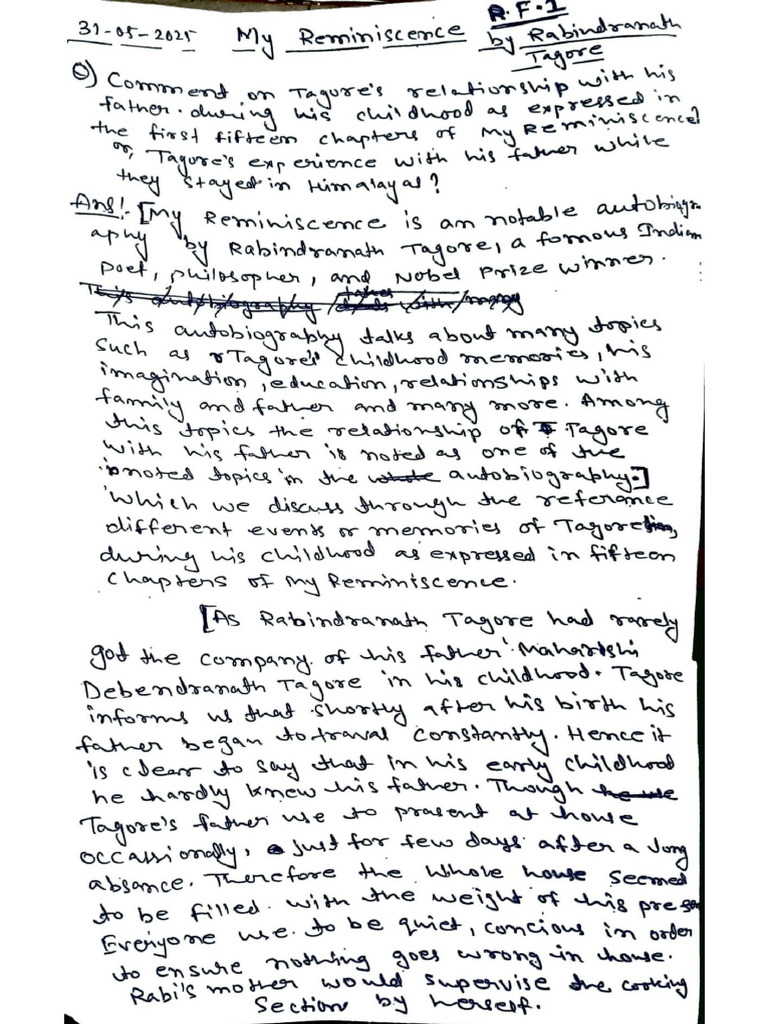 R.F.1
31-05-2025 My Reminiscence by Rabindranath
Tagore
Q) Comment on Tagore's relationship with his
father during his childhood as expressed in
the first fifteen chapters of My Reminiscence?
or, Tagore's experience with his father while
they stayed in Himalayas?
Ans:- [My Reminiscence is an notable autobiogr-
aphy by Rabindranath Tagore, a fomous Indian
Poet, philosopher, and Nobel Prize winner.
This autobiography talks about many topics
Such as Tagore's childhood memories, his
imagination, education, relationships with
family and father and many more. Among
this topics the relationship of Tagore
with his father is noted as one of the
noted topics in the autobiography.]
Which we discuss through the reference
different events or memories of Tagore
during his childhood as expressed in fifteen
Chapters of My Reminiscence.
[As Rabindranath Tagore had rarely
got the company of his father Maharshi
Debendranath Tagore in his childhood. Tagore
informs us that shortly after his birth his
father began to traval constantly. Hence it
is clear to say that in his early childhood
he hardly knew his father. Though
Tagore's father use to prasent at house
occassionally, just for few days after a long
absance. Therefore the whole house seemed
to be filled with the weight of his pre
Everyone use to be quiet, concious in order
to ensure nothing goes wrong in house.
Rabi's mother would supervise the cooking
Section by herself.